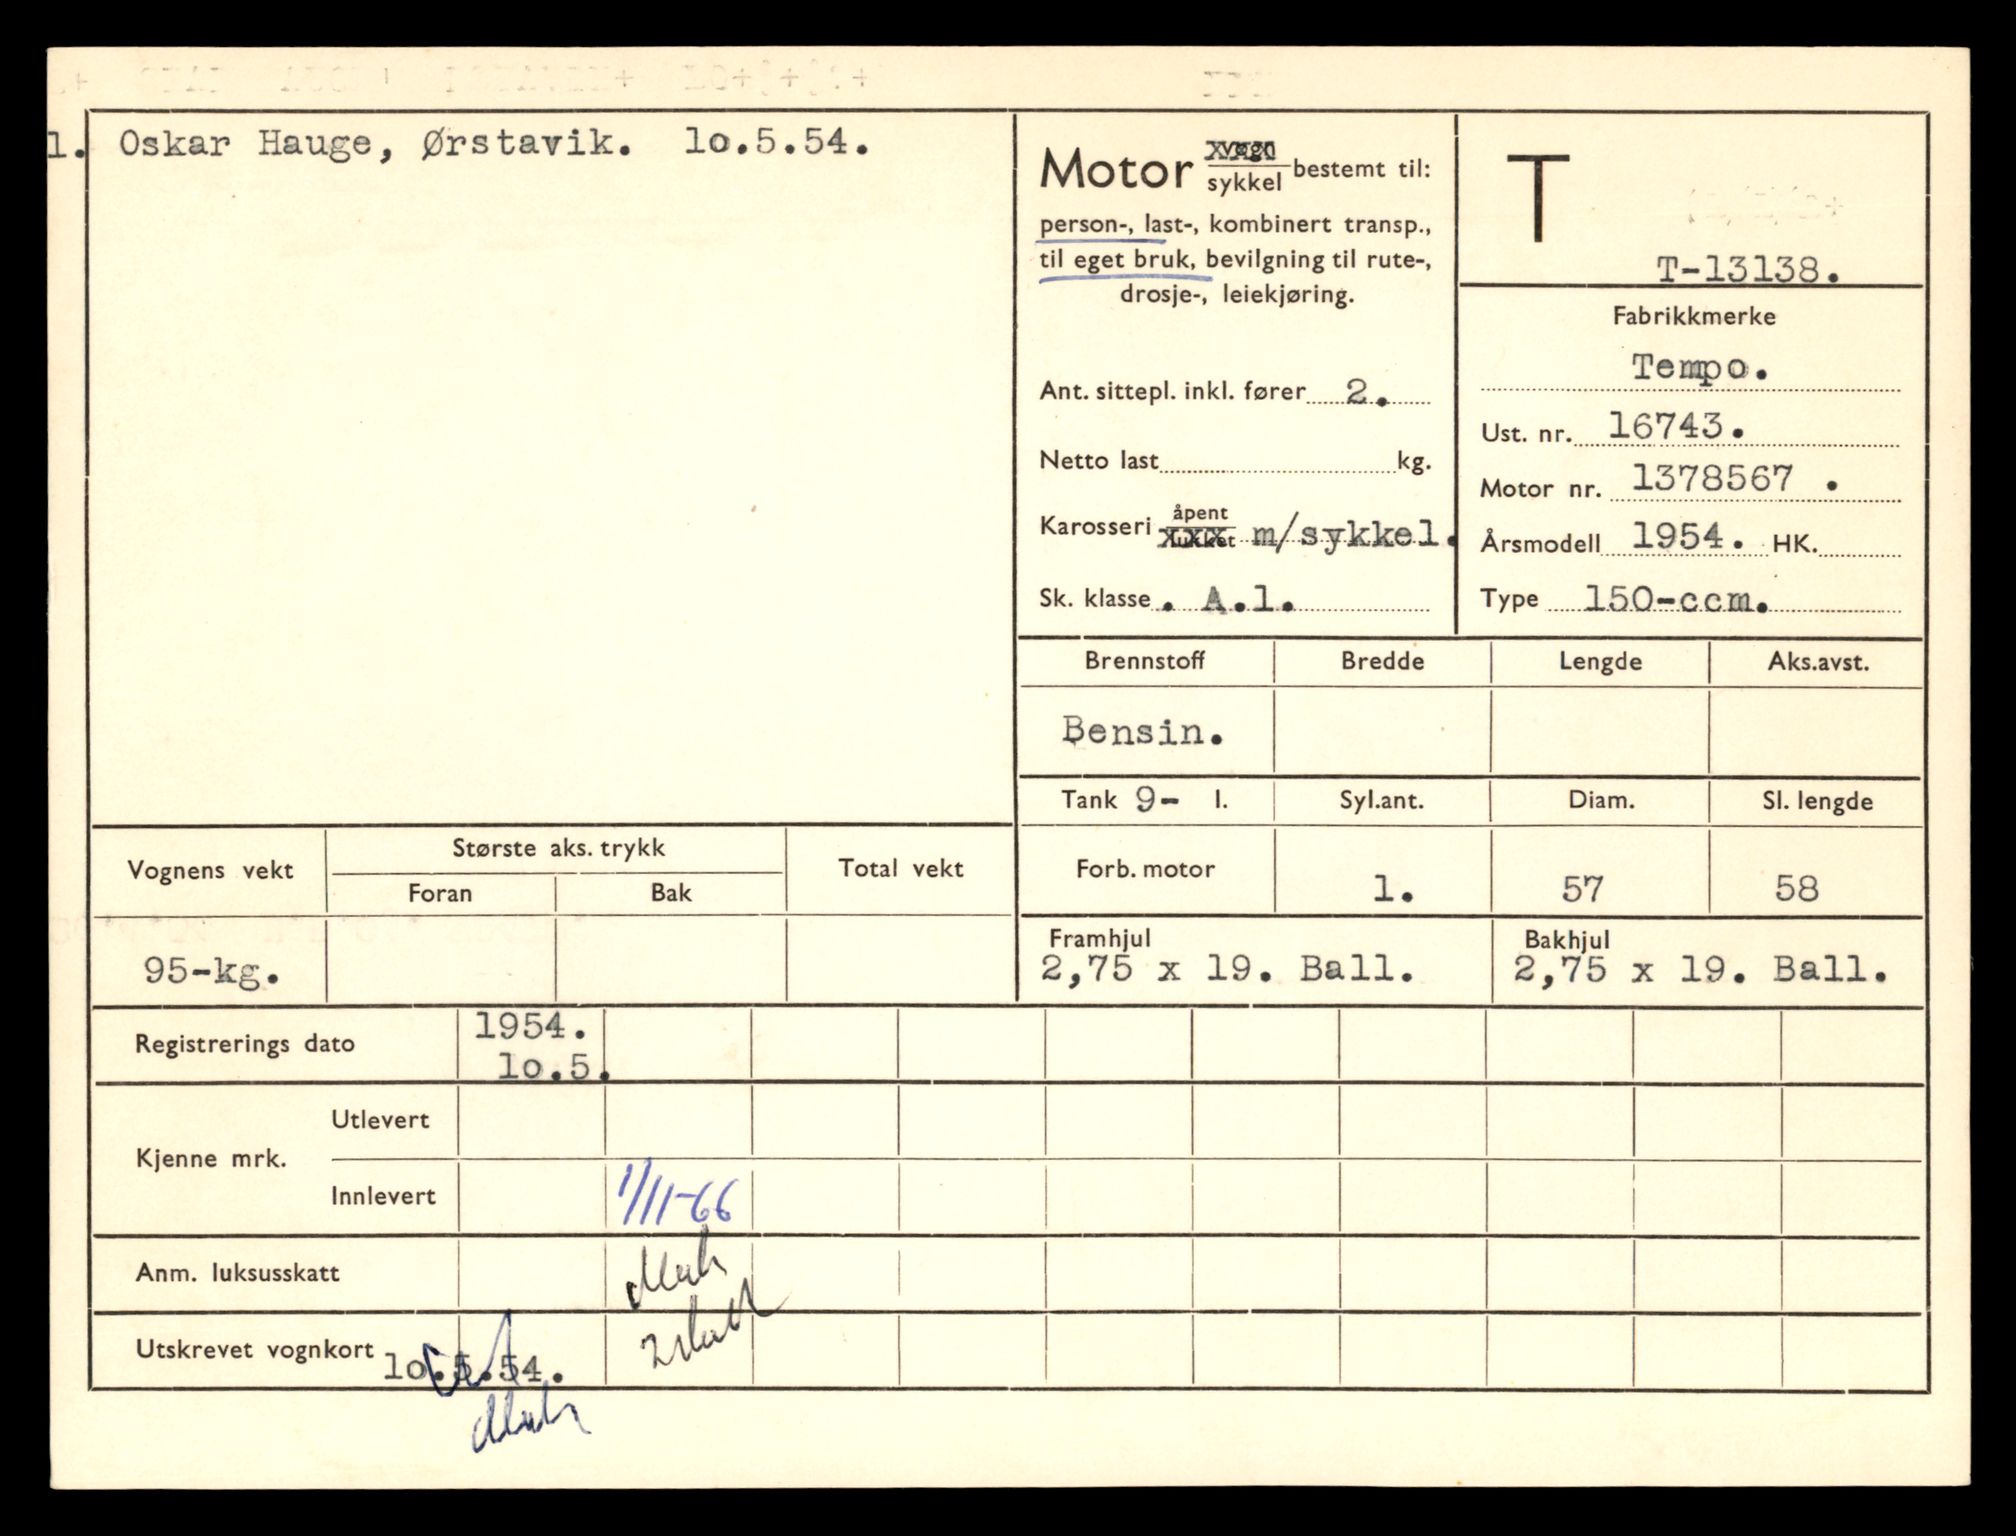 1. Oskar Hauge, Ørstavik. lo.5.54.
Motor vogn/sykkel bestemt til:
person-, last-, kombinert transp.,
til eget bruk, bevilgning til rute-,
drosje-, leiekjøring.
Ant. sittepl. inkl. fører 2.
Netto last kg.
Karosseri åpent/lukket m/sykkel.
Sk. klasse . A.l.
T
T-13138.
Fabrikkmerke
Tempo.
Ust. nr. 16743.
Motor nr. 1378567 .
Årsmodell 1954. HK.
Type 150-ccm.
Brennstoff Bredde Lengde Aks.avst.
Bensin.
Tank 9- l. Syl.ant. Diam. Sl. lengde
Forb. motor 1. 57 58
Framhjul Bakhjul
2,75 x 19. Ball. 2,75 x 19. Ball.
Vognens vekt Største aks. trykk Total vekt
Foran Bak
95-kg.
Registrerings dato 1954.
lo.5.
Kjenne mrk. Utlevert
Innlevert 1/11-66
Anm. luksusskatt
Utskrevet vognkort lo.5.54.